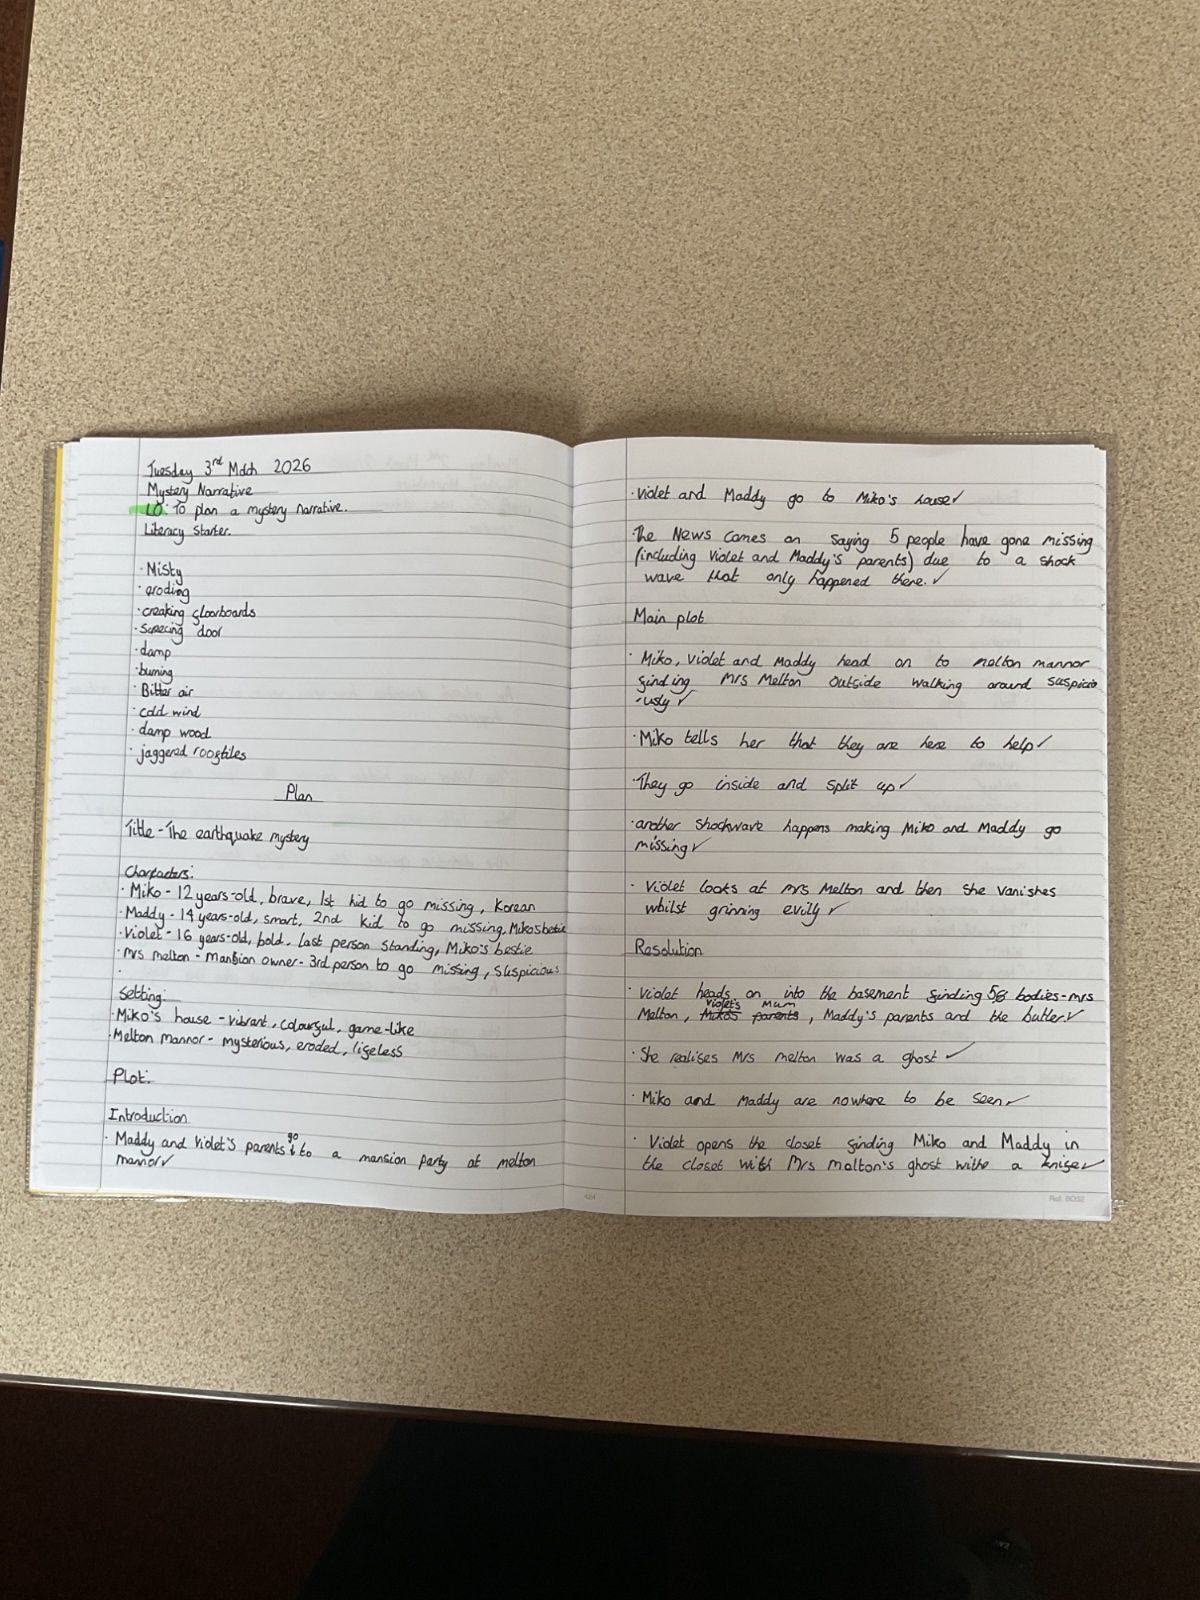 Tuesday 3rd March 2026
Mystery Narrative
LO: To plan a mystery narrative.
Literacy starter.
· Misty
· eroding
· creaking floorboards
· door
· damp
· burning
· Bitter air
· cold wind
· damp wood
· jaggered rooftiles
Plan
Title - The earthquake mystery
Characters:
· Miko - 12 years-old, brave, 1st kid to go missing, Korean
· Maddy - 14 years-old, smart, 2nd kid to go missing, Miko's bestie
· Violet - 16 years-old, bold, last person standing, Miko's bestie
· Mrs melton - Mansion owner - 3rd person to go missing, suspicious
·
Setting:
· Miko's house - vibrant, colourful, game-like
· Melton mannor - mysterious, eroded, lifeless
Plot:
Introduction
· Maddy and Violet's parents go to a mansion party at melton
mannor ✓
· Violet and Maddy go to Miko's house ✓
· The News comes on saying 5 people have gone missing
(including Violet and Maddy's parents) due to a shock
wave that only happened there. ✓
Main plot
· Miko, Violet and Maddy head on to melton mannor
finding Mrs Melton outside walking around suspicio
-usly ✓
· Miko tells her that they are here to help ✓
· They go inside and split up ✓
· another shockwave happens making Miko and Maddy go
missing ✓
· Violet looks at mrs Melton and then she vanishes
whilst grinning evilly ✓
Resolution
· Violet heads on into the basement finding 5 bodies - mrs
Melton, Violet's Mum, Maddy's parents and the butler. ✓
· She realises Mrs melton was a ghost ✓
· Miko and Maddy are nowhere to be seen ✓
· Violet opens the closet finding Miko and Maddy in
the closet with Mrs malton's ghost withe a knife ✓
424
Ref: BO32